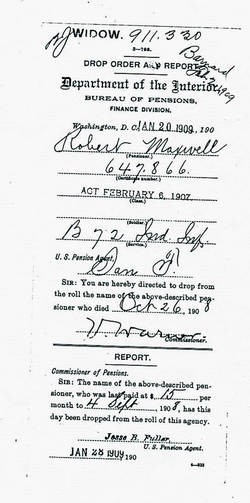 WIDOW. 911.320
3-798.
DROP ORDER AND REPORT
Department of the Interior
BUREAU OF PENSIONS,
FINANCE DIVISION.
Washington, D. C. JAN 20 1909, 190
Robert Maxwell
(Pensioner.)
647.866.
(Certificate number.)
ACT FEBRUARY 6, 1907.
(Class.)
(Soldier.)
B 72 Ind. Inf.
(Service.)
U. S. Pension Agent.
SIR: You are hereby directed to drop from
the roll the name of the above-described pen-
sioner who died Oct 26, 1908
V. Warner
Commissioner.
REPORT.
Commissioner of Pensions.
SIR: The name of the above-described pen-
sioner, who was last paid at $ 15 per
month to 4 Sept 1908, has this
day been dropped from the roll of this agency.
Jesse B. Fuller.
U. S. Pension Agent.
JAN 28 1909 190